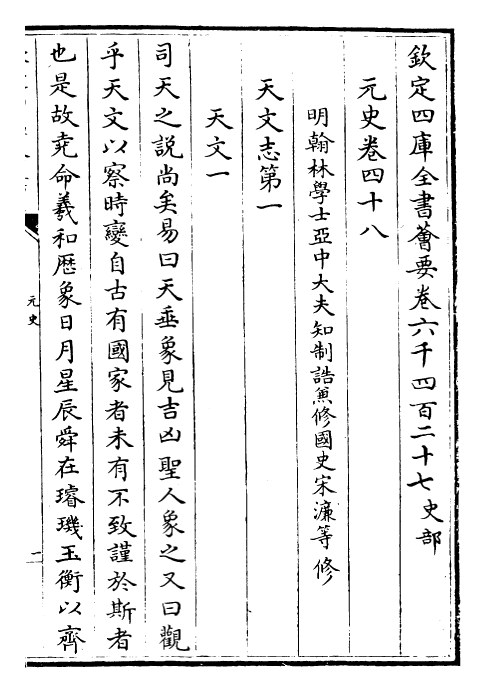 欽定四庫全書薈要卷六千四百二十七史部
元史卷四十八
明翰林學士亞中大夫知制誥兼修國史宋濂等修
天文志第一
天文一
司天之説尚矣易曰天垂象見吉凶聖人象之又曰觀
乎天文以察時變自古有國家者未有不致謹於斯者
也是故堯命羲和厯象日月星辰舜在璿璣玉衡以齊
元史